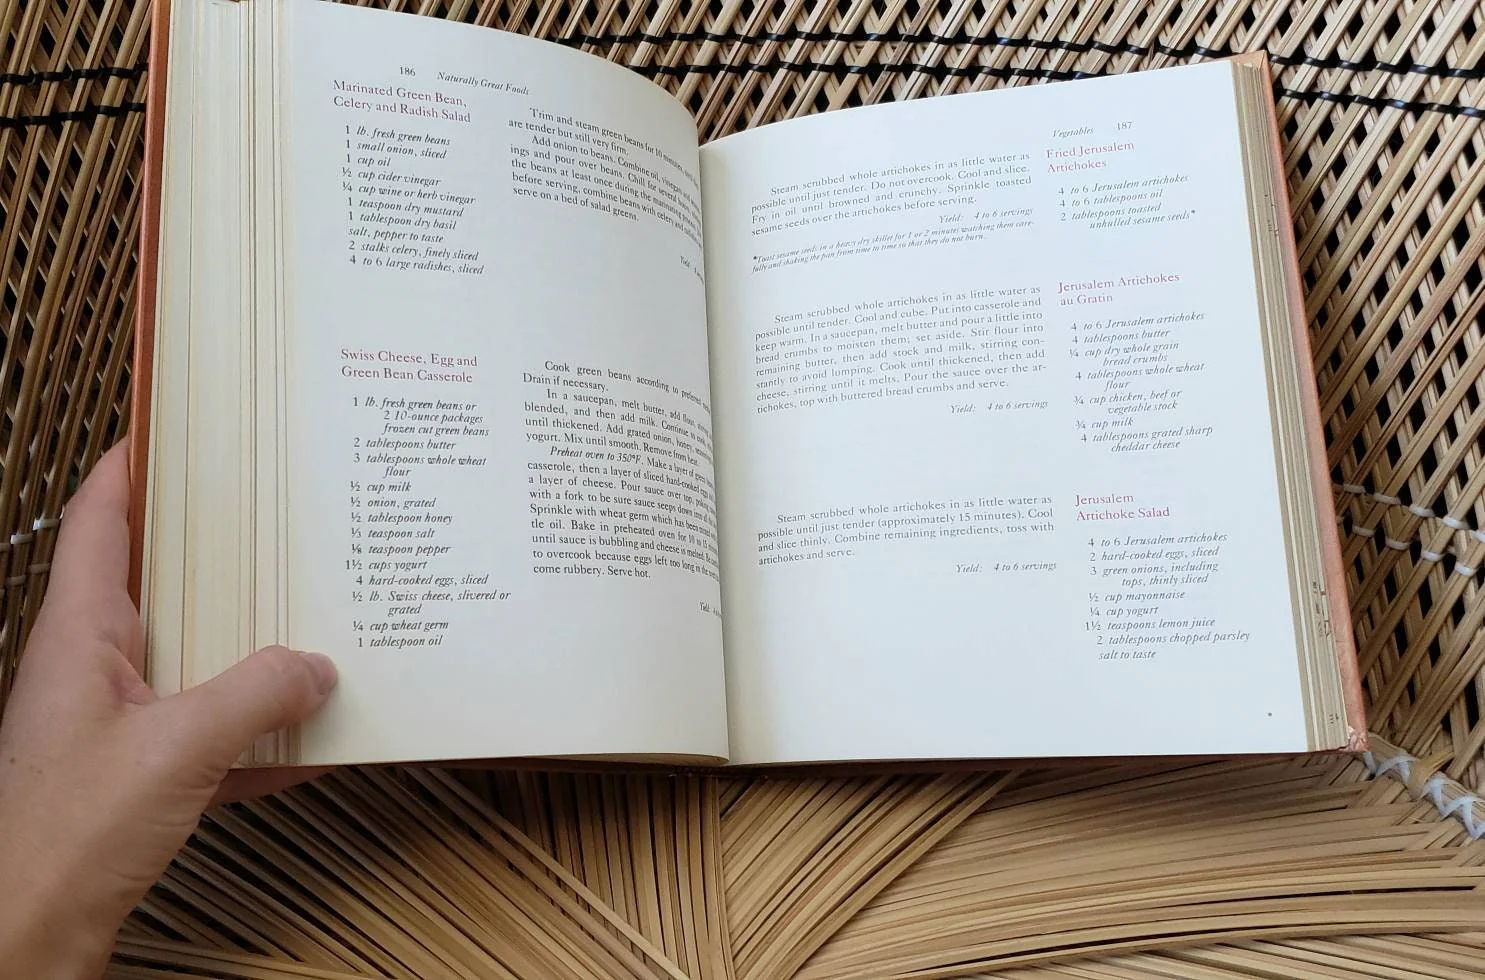 186 Naturally Great Foods
Marinated Green Bean,
Celery and Radish Salad
1 lb. fresh green beans
1 small onion, sliced
1 cup oil
½ cup cider vinegar
¼ cup wine or herb vinegar
1 teaspoon dry mustard
1 tablespoon dry basil
salt, pepper to taste
2 stalks celery, finely sliced
4 to 6 large radishes, sliced
Trim and steam green beans for 10 minutes,
are tender but still very firm.
Add onion to beans. Combine oil, vinegar and
ings and pour over beans. Chill for several hours,
the beans at least once during the marinating
before serving, combine beans with celery and
serve on a bed of salad greens.
Yield:
Swiss Cheese, Egg and
Green Bean Casserole
1 lb. fresh green beans or
2 10-ounce packages
frozen cut green beans
2 tablespoons butter
3 tablespoons whole wheat
flour
½ cup milk
½ onion, grated
½ tablespoon honey
⅓ teaspoon salt
⅛ teaspoon pepper
1½ cups yogurt
4 hard-cooked eggs, sliced
½ lb. Swiss cheese, slivered or
grated
¼ cup wheat germ
1 tablespoon oil
Cook green beans according to preferred
Drain if necessary.
In a saucepan, melt butter, add flour,
blended, and then add milk. Continue to
until thickened. Add grated onion, honey,
yogurt. Mix until smooth. Remove from heat.
Preheat oven to 350°F. Make a layer of green
casserole, then a layer of sliced hard-cooked eggs
a layer of cheese. Pour sauce over top,
with a fork to be sure sauce seeps down into all the
Sprinkle with wheat germ which has been mixed with
tle oil. Bake in preheated oven for 10 to 15
until sauce is bubbling and cheese is melted. Be
to overcook because eggs left too long in the oven
come rubbery. Serve hot.
Yield:
Vegetables 187
Fried Jerusalem
Artichokes
4 to 6 Jerusalem artichokes
4 to 6 tablespoons oil
2 tablespoons toasted
unhulled sesame seeds*
Steam scrubbed whole artichokes in as little water as
possible until just tender. Do not overcook. Cool and slice.
Fry in oil until browned and crunchy. Sprinkle toasted
sesame seeds over the artichokes before serving.
Yield: 4 to 6 servings
*Toast sesame seeds in a heavy dry skillet for 1 or 2 minutes watching them care-
fully and shaking the pan from time to time so that they do not burn.
Jerusalem Artichokes
au Gratin
4 to 6 Jerusalem artichokes
4 tablespoons butter
¼ cup dry whole grain
bread crumbs
4 tablespoons whole wheat
flour
¾ cup chicken, beef or
vegetable stock
¾ cup milk
4 tablespoons grated sharp
cheddar cheese
Steam scrubbed whole artichokes in as little water as
possible until tender. Cool and cube. Put into casserole and
keep warm. In a saucepan, melt butter and pour a little into
bread crumbs to moisten them; set aside. Stir flour into
remaining butter, then add stock and milk, stirring con-
stantly to avoid lumping. Cook until thickened, then add
cheese, stirring until it melts. Pour the sauce over the ar-
tichokes, top with buttered bread crumbs and serve.
Yield: 4 to 6 servings
Jerusalem
Artichoke Salad
4 to 6 Jerusalem artichokes
2 hard-cooked eggs, sliced
3 green onions, including
tops, thinly sliced
½ cup mayonnaise
¼ cup yogurt
1½ teaspoons lemon juice
2 tablespoons chopped parsley
salt to taste
Steam scrubbed whole artichokes in as little water as
possible until just tender (approximately 15 minutes). Cool
and slice thinly. Combine remaining ingredients, toss with
artichokes and serve.
Yield: 4 to 6 servings